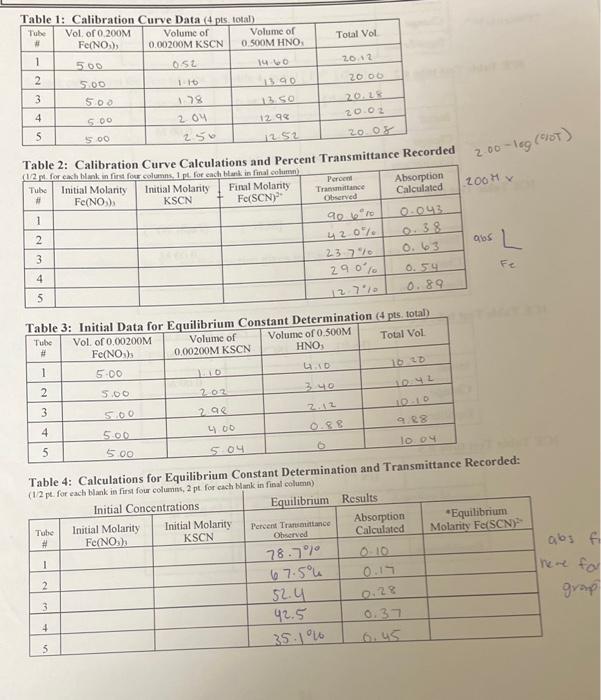 Table 1: Calibration Curve Data (4 pts. total)
Tube # | Vol. of 0.200M Fe(NO₃)₃ | Volume of 0.00200M KSCN | Volume of 0.500M HNO₃ | Total Vol.
1 | 5.00 | 0.52 | 14.60 | 20.12
2 | 5.00 | 1.10 | 13.90 | 20.00
3 | 5.00 | 1.78 | 13.50 | 20.28
4 | 5.00 | 2.04 | 12.98 | 20.02
5 | 5.00 | 2.56 | 12.52 | 20.08
Table 2: Calibration Curve Calculations and Percent Transmittance Recorded
2.00-log(%T)
(1/2 pt. for each blank in first four columns, 1 pt. for each blank in final column)
Tube # | Initial Molarity Fe(NO₃)₃ | Initial Molarity KSCN | Final Molarity Fe(SCN)²⁺ | Percent Transmittance Observed | Absorption Calculated
.200M x
1 | 90.6% | 0.043
2 | 42.0% | 0.38
3 | 23.7% | 0.63
4 | 29.0% | 0.54
5 | 12.7% | 0.89
abs
Fe
Table 3: Initial Data for Equilibrium Constant Determination (4 pts. total)
Tube # | Vol. of 0.00200M Fe(NO₃)₃ | Volume of 0.00200M KSCN | Volume of 0.500M HNO₃ | Total Vol.
1 | 5.00 | 1.10 | 4.10 | 10.20
2 | 5.00 | 2.02 | 3.40 | 10.42
3 | 5.00 | 2.98 | 2.12 | 10.10
4 | 5.00 | 4.00 | 0.88 | 9.88
5 | 5.00 | 5.04 | 0 | 10.04
Table 4: Calculations for Equilibrium Constant Determination and Transmittance Recorded:
(1/2 pt. for each blank in first four columns, 2 pt. for each blank in final column)
Initial Concentrations | Equilibrium Results
Tube # | Initial Molarity Fe(NO₃)₃ | Initial Molarity KSCN | Percent Transmittance Observed | Absorption Calculated | *Equilibrium Molarity Fe(SCN)²⁺
1 | 78.7% | 0.10
2 | 67.5% | 0.17
3 | 52.4 | 0.28
4 | 42.5 | 0.37
5 | 35.1% | 0.45
abs
here for
graph